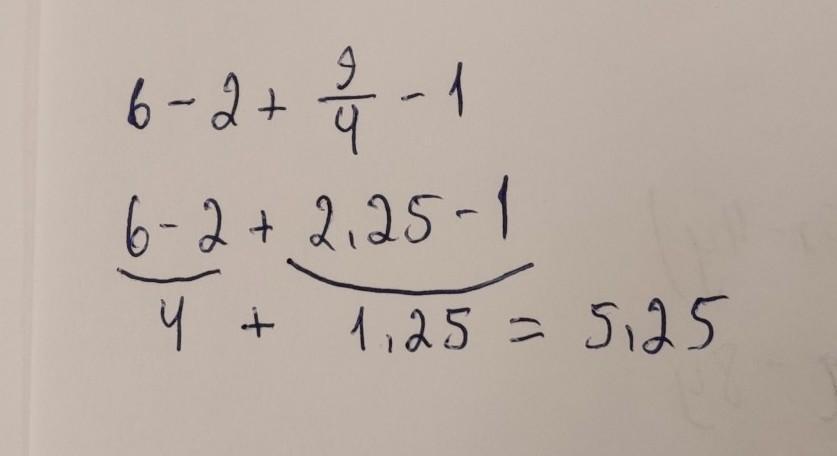 6 - 2 + 9/4 - 1
6 - 2 + 2,25 - 1
4 + 1,25 = 5,25